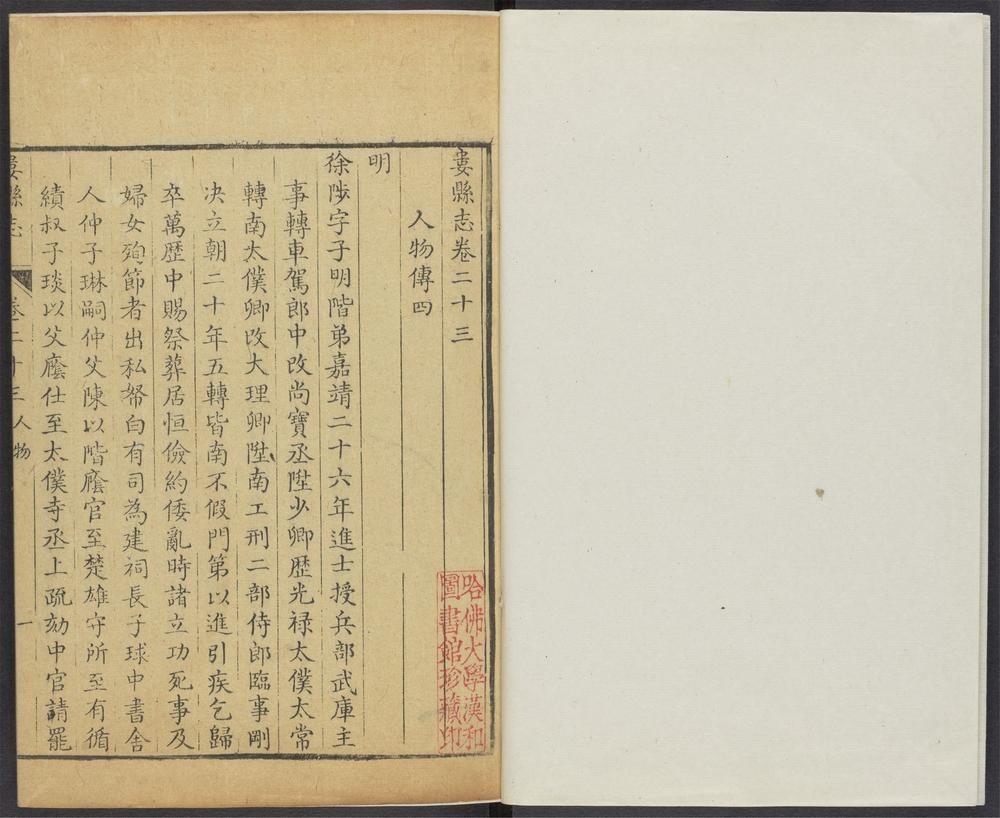 婁縣志卷二十三
人物傳四
明
徐陟字子明階弟嘉靖二十六年進士授兵部武庫主
事轉車駕郎中改尚寶丞陞少卿歴光禄太僕太常
轉南太僕卿改大理卿陞南工刑二部侍郎臨事剛
決立朝二十年五轉皆南不假門第以進引疾乞歸
卒萬歴中賜祭葬居恒儉約倭亂時諸立功死事及
婦女殉節者出私帑白有司為建祠長子球中書舍
人仲子琳嗣仲父陳以階廕官至楚雄守所至有循
績叔子琰以父廕仕至太僕寺丞上疏劾中官請罷
婁縣志 卷二十三 人物 一
哈佛大學漢和
圖書館珍藏印